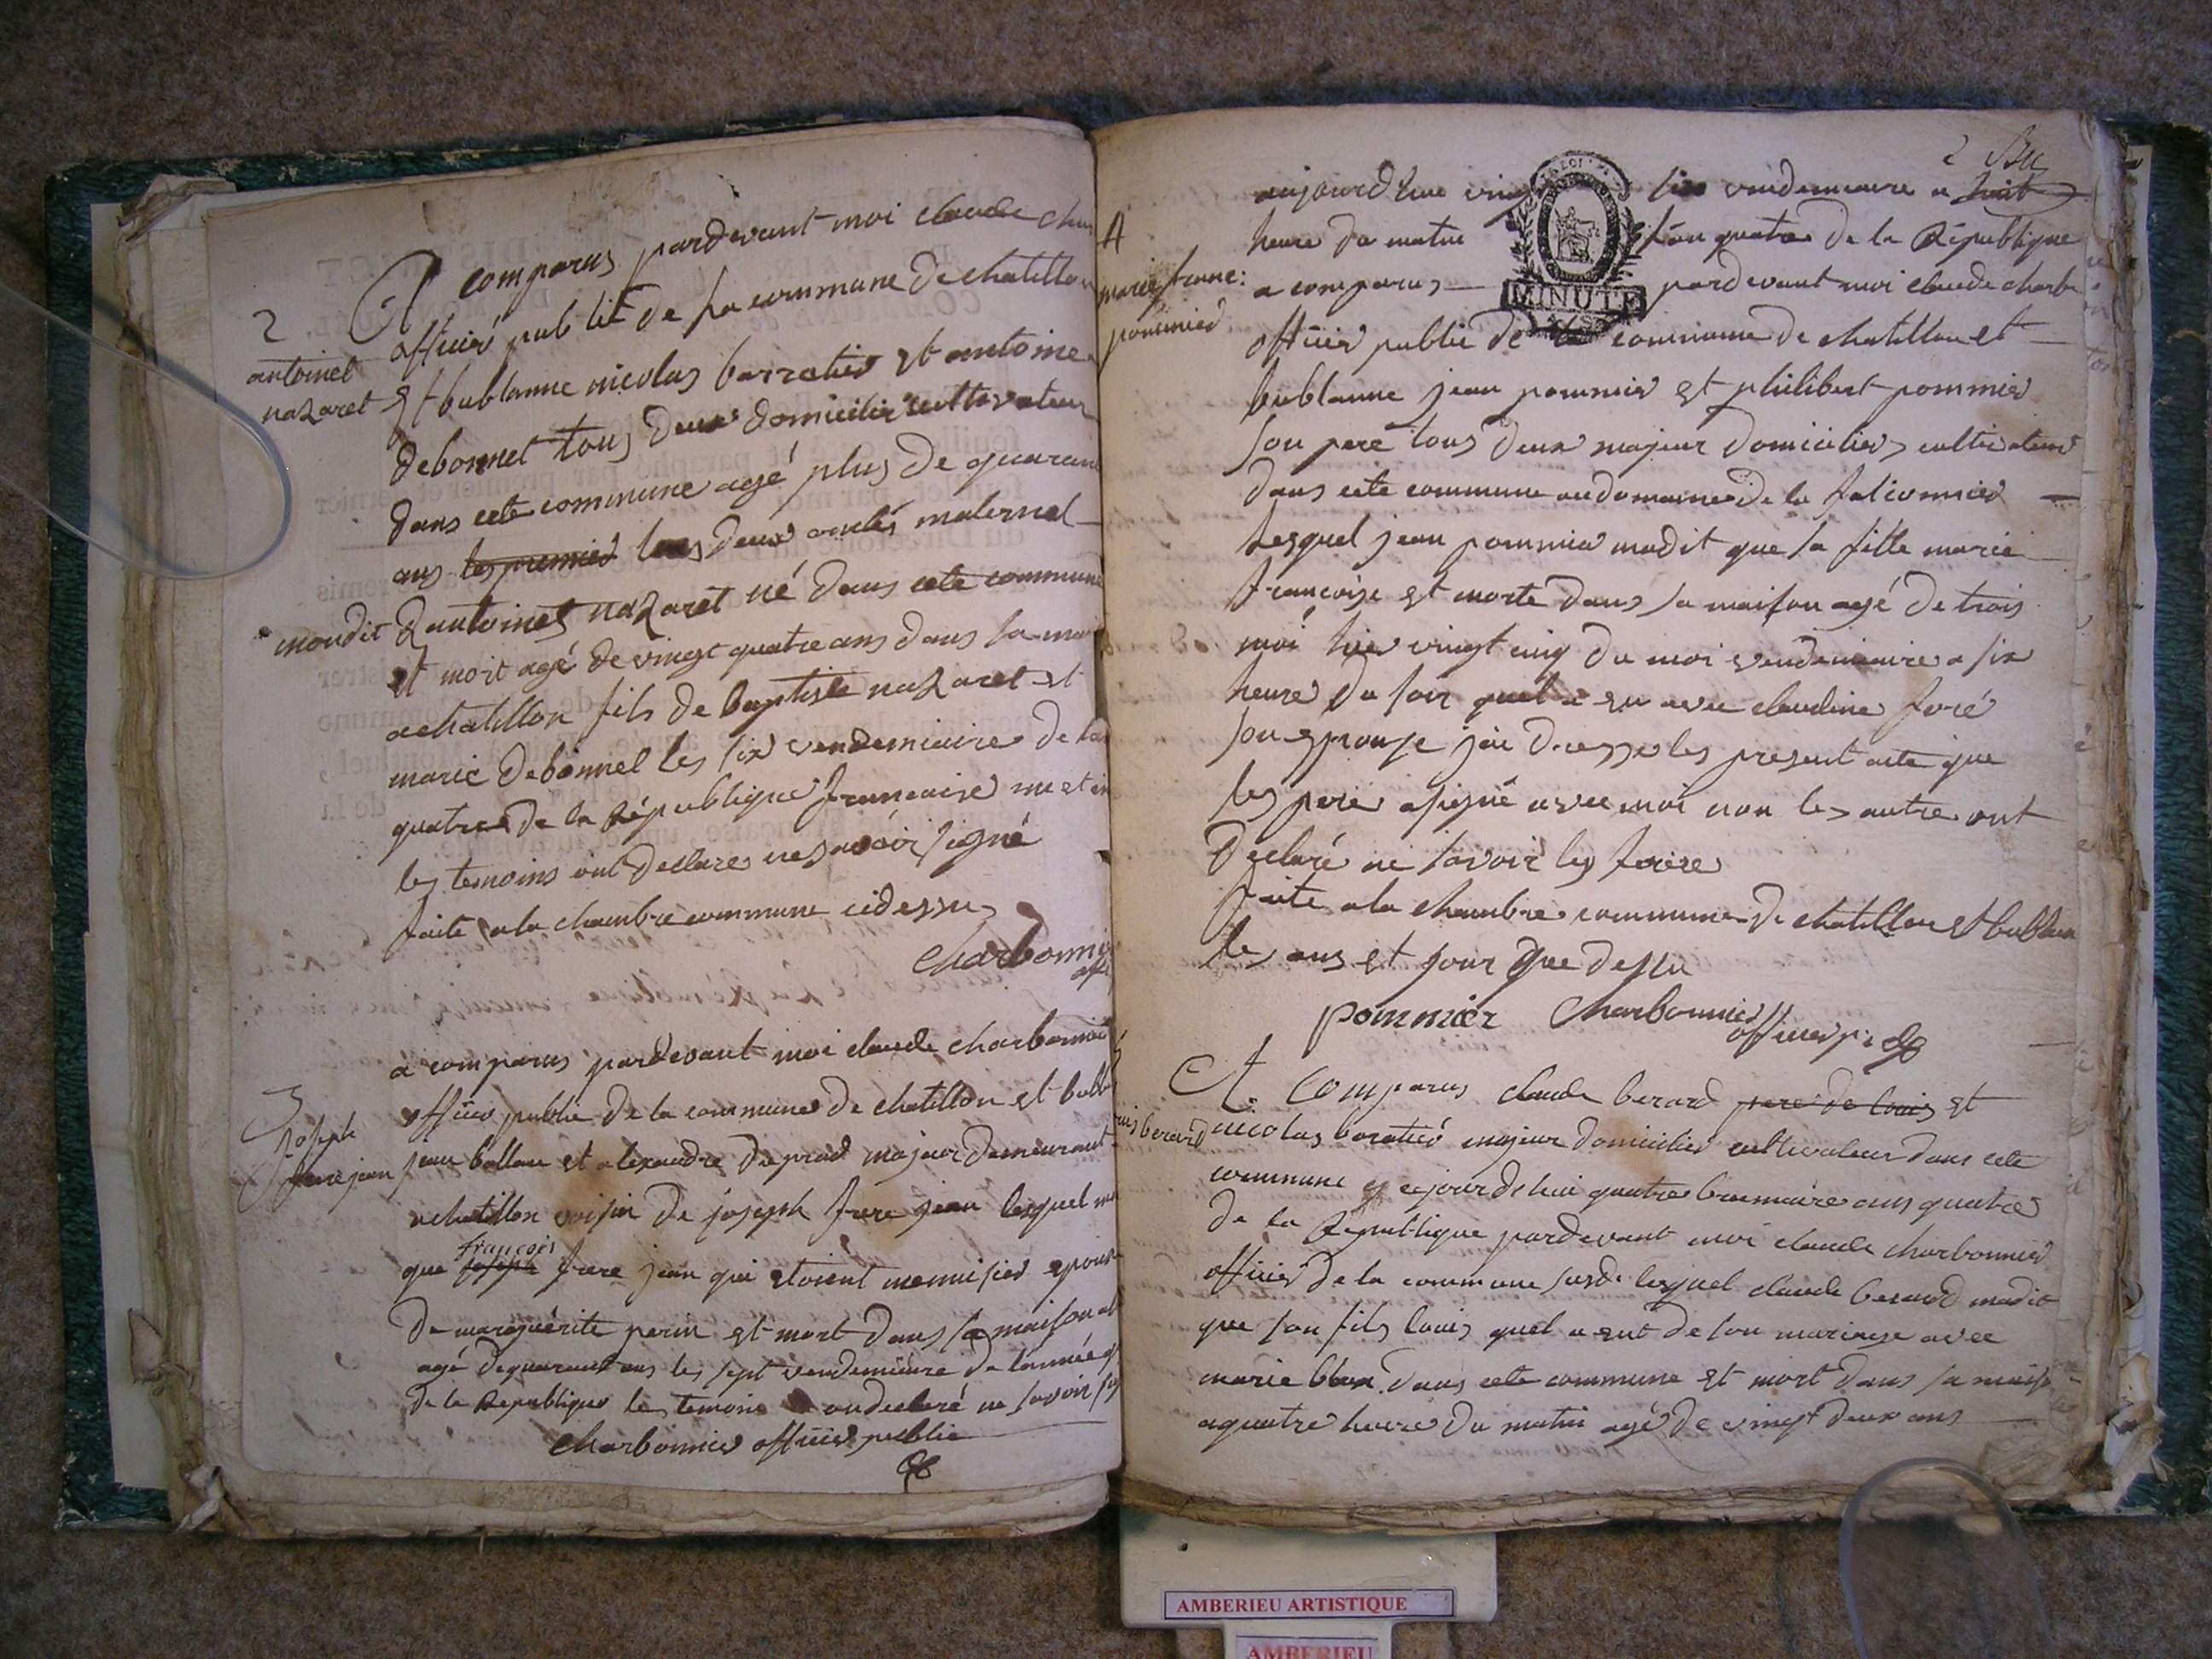 2
antoinet
nazaret
A comparus pardevant moi claude
officié public de la commune de chatillon
et bublanne nicolas barratier et antoine
debonnel tous deux domicilié cultivateur
dans cete commune agé plus de quaran
ans les premier deux oncles maternel
moudit d'antoinet nazaret né dans cete commune
et mort agé de vingt quatre ans dans sa
a chatillon fils de baptiste nazaret et
marie debonnel les six vendemiaire de
quatre de la République francaise
les temoins ont declare ne savoir signé
faite a la chambre commune cidessus
Charbonni
3
joseph
frere jean
a comparus pardevant moi claude charbonnie
officier public de la commune de chatillon et
jean ballan et alexandre duprad majour demeurant
a chatillon voisin de joseph frere jean lesquel
françois
que joseph frere jean qui etoient menuisier epou
de marguerite perin est mort dans sa maison
agé dequarant ans les sept vendemiaire de l'année
de la Republique les temoins on declaré ne savoir
Charbonnier officier public
2
aujourd'hui ving six vendemiaire a huit
heure du matin l'an quatre de la République
A
marie franc:
pommier
a comparus pardevant moi claude charbo
officier public de la commune de chatillon et
bublanne jean pommier et philibert pommier
son pere tous deux majeur domicilier cultivateur
dans cete commune au domaine de la
Lesquel jean pommier madit que sa fille marie
francoise est morte dans sa maison agé de trois
moi hier vingt cinq du moi vendemiaire a six
heure du soir quel a eu avec claudine foré
son epouse jai dresse les present acte que
les pere a signé avec moi non les autre ont
declaré ne savoir les faire
faite a la chambre commune de chatillon et bublan
les ans et jour que dessu
pommier Charbonnier
officier p:
A comparus claude berard pere de louis et
berard
nicolas baratier majeur domicilier cultivateur dans cete
commune cejourdehui quatre brumaire ans quatre
de la Republique pardevant moi claude charbonnier
officier de la commune susd. lesquel claude berard madit
que son fils louis quel a eut de son mariage avec
marie dans cete commune est mort dans sa maiso
a quatre heure du matin agé de vingt deux ans
LOI
MINUTE
AMBERIEU ARTISTIQUE
AMBERIEU